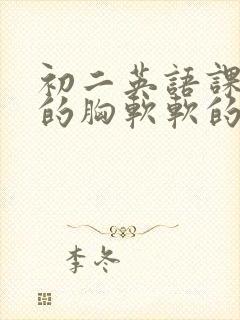 初二英語課
的胸軟軟的
李冬